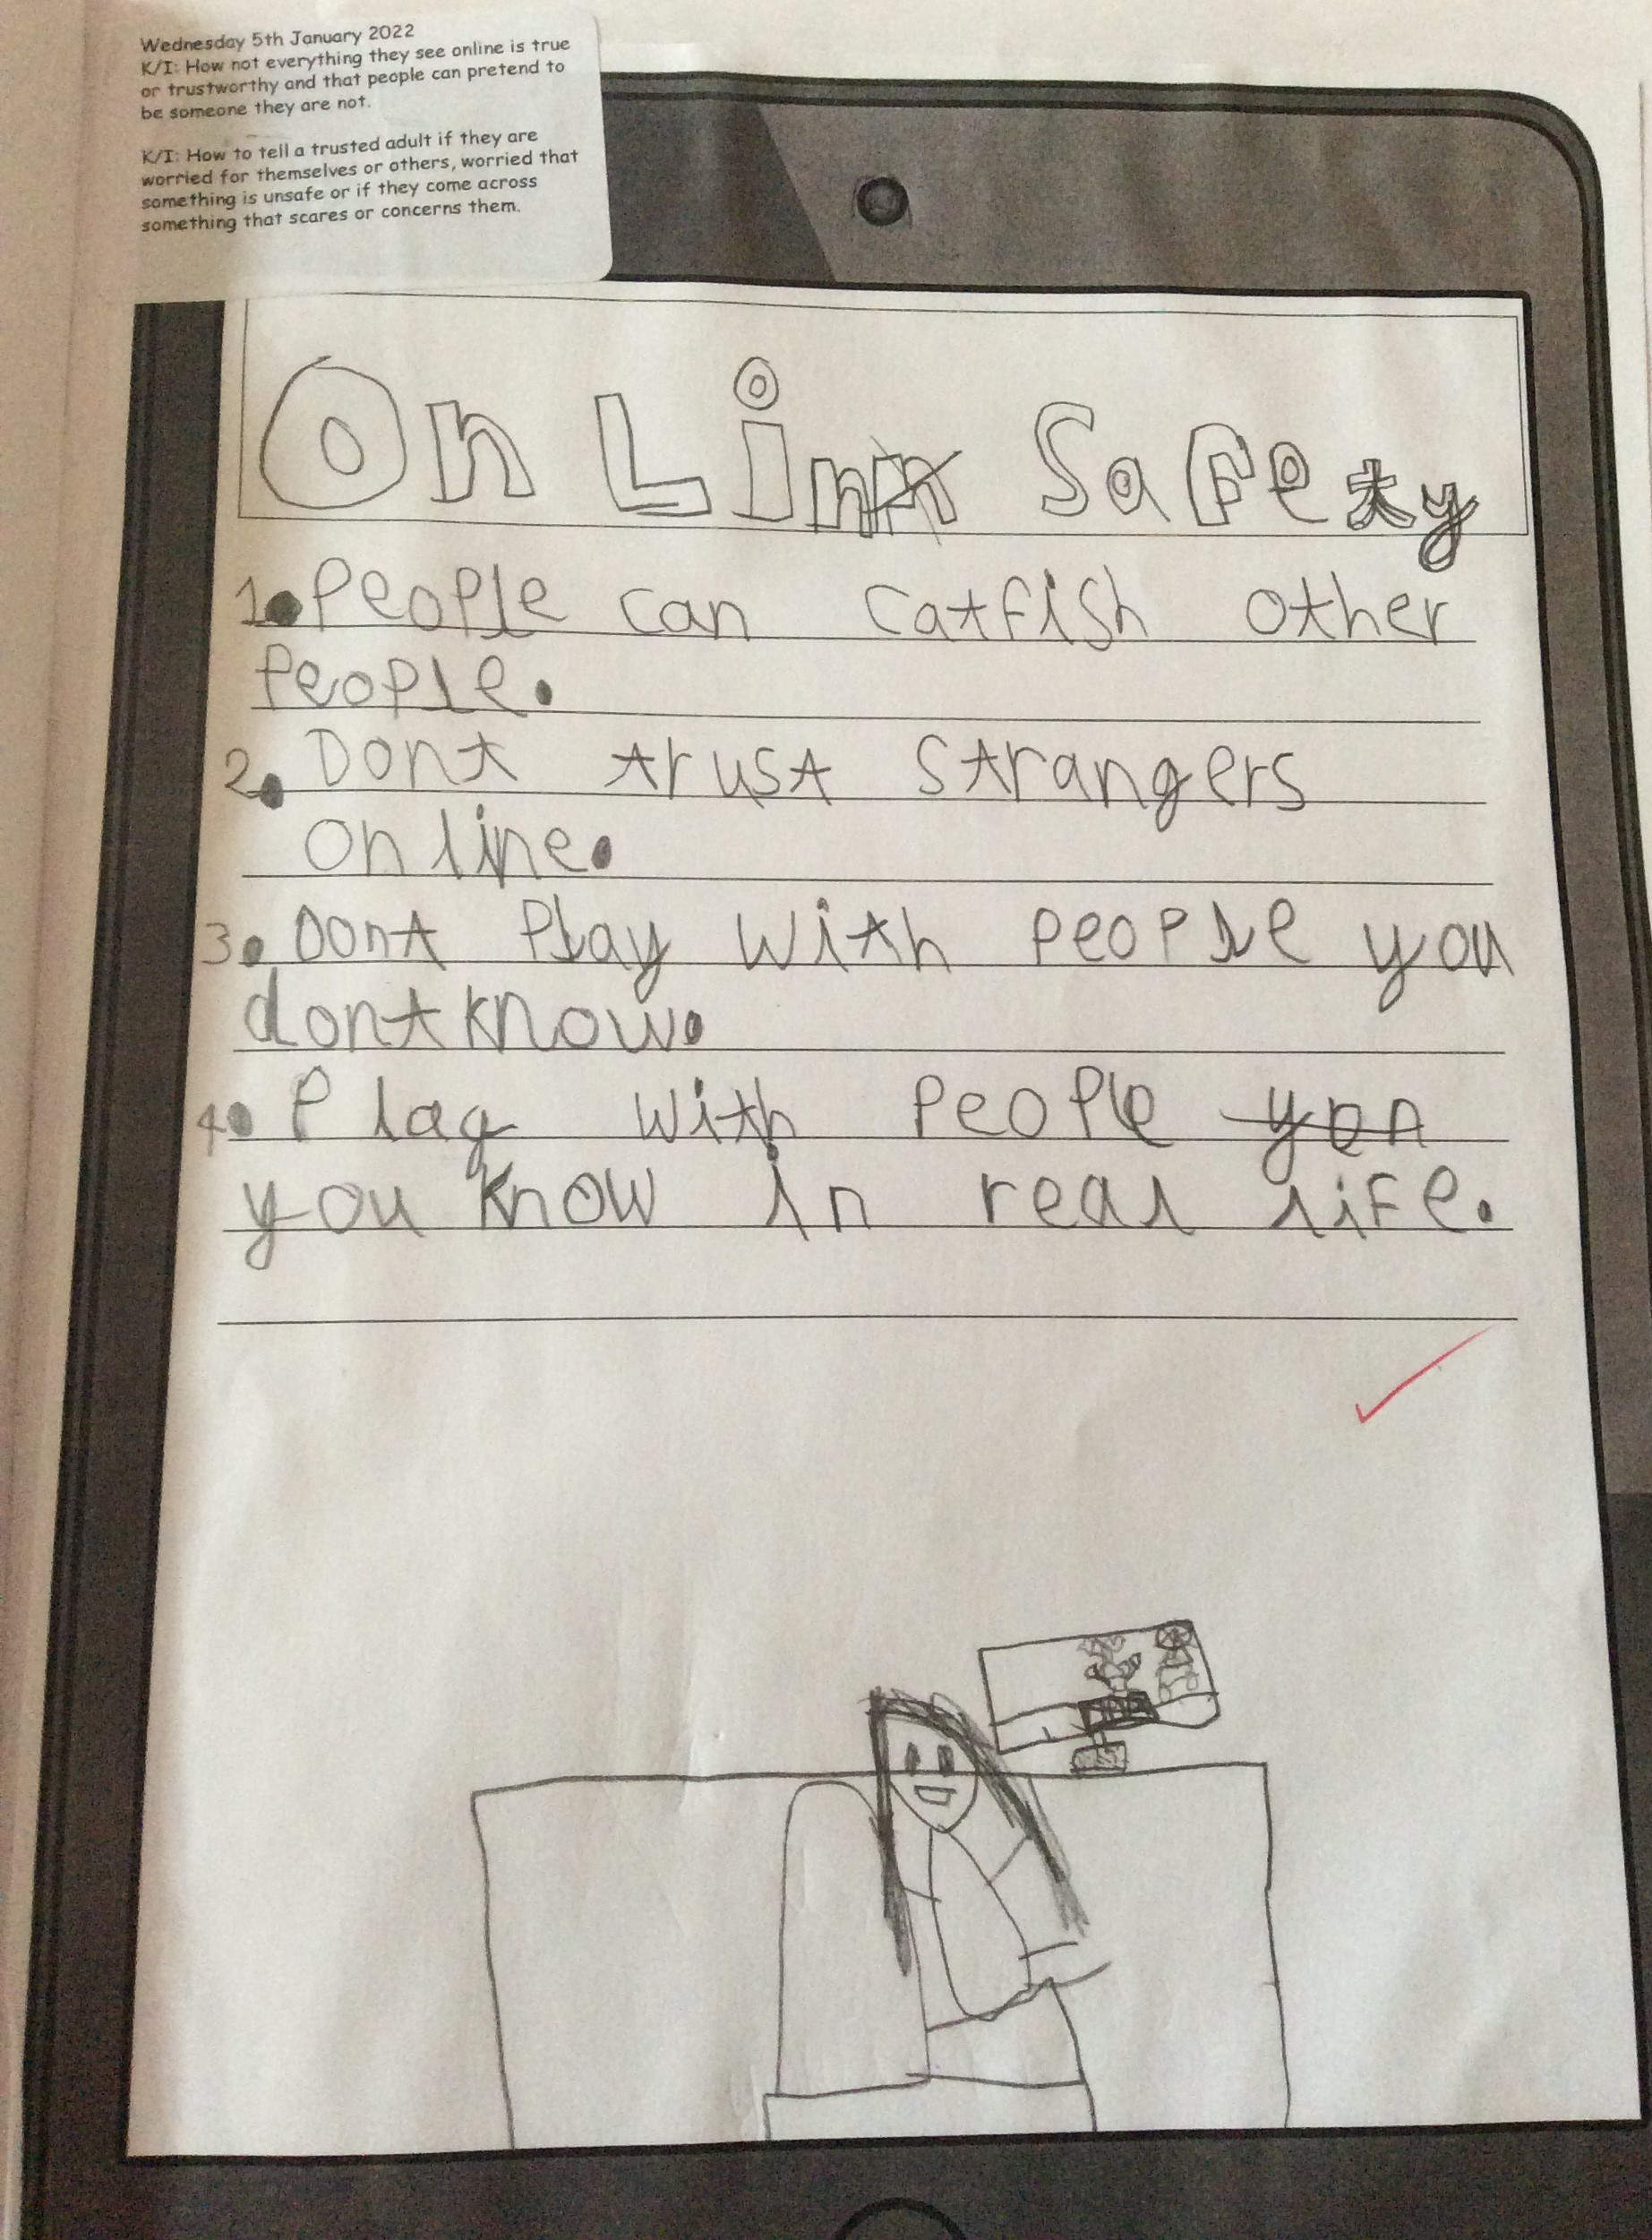 Wednesday 5th January 2022
K/I: How not everything they see online is true
or trustworthy and that people can pretend to
be someone they are not.
K/I: How to tell a trusted adult if they are
worried for themselves or others, worried that
something is unsafe or if they come across
something that scares or concerns them.
On Lin Safety
1. People can catfish other
People.
2. Dont trust strangers
on line.
3. Dont Play with people you
dont know.
4. Play with People yon
you know in real life.